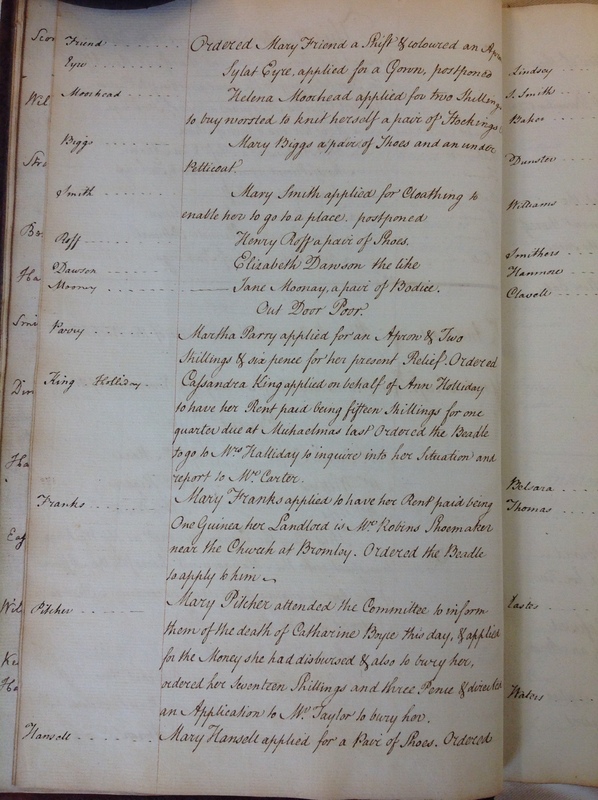 Friend Ordered Mary Friend a Shift & coloured an Apron
Eyre Sylat Eyre, applied for a Gown, postponed
Moorhead Helena Moorhead applied for two Shillings
to buy worsted to knit herself a pair of Stockings
Biggs Mary Biggs a pair of Shoes and an under
Petticoat.
Smith Mary Smith applied for Cloathing to
enable her to go to a place. postponed
Roff Henry Roff a pair of Shoes.
Dawson Elizabeth Dawson the like
Mooney Jane Moonay, a pair of Bodice.
Out Door Poor.
Parry Martha Parry applied for an Apron & Two
Shillings & six pence for her present Relief. Ordered
King Holliday Cassandra King applied on behalf of Ann Holliday
to have her Rent paid being fifteen Shillings for one
quarter due at Michaelmas last Ordered the Beadle
to go to Mrs Halliday to inquire into her Situation and
report to Mr Carter.
Franks Mary Franks applied to have her Rent paid being
One Guinea her Landlord is Mr Robins Shoemaker
near the Church at Bromley. Ordered the Beadle
to apply to him
Pitcher Mary Pitcher attended the Committee to inform
them of the death of Catharine Boyce this day, & applied
for the Money she had disbursed & also to bury her,
ordered her Seventeen Shillings and three Pence & directed
an Application to Mr Taylor to bury her.
Hansell Mary Hansell applied for a Pair of Shoes. Ordered
Lindsey
S. Smith
Baker
Dunster
Williams
Smithers
Hanmore
Clavell
Belvara
Thomas
Eastes
Waters